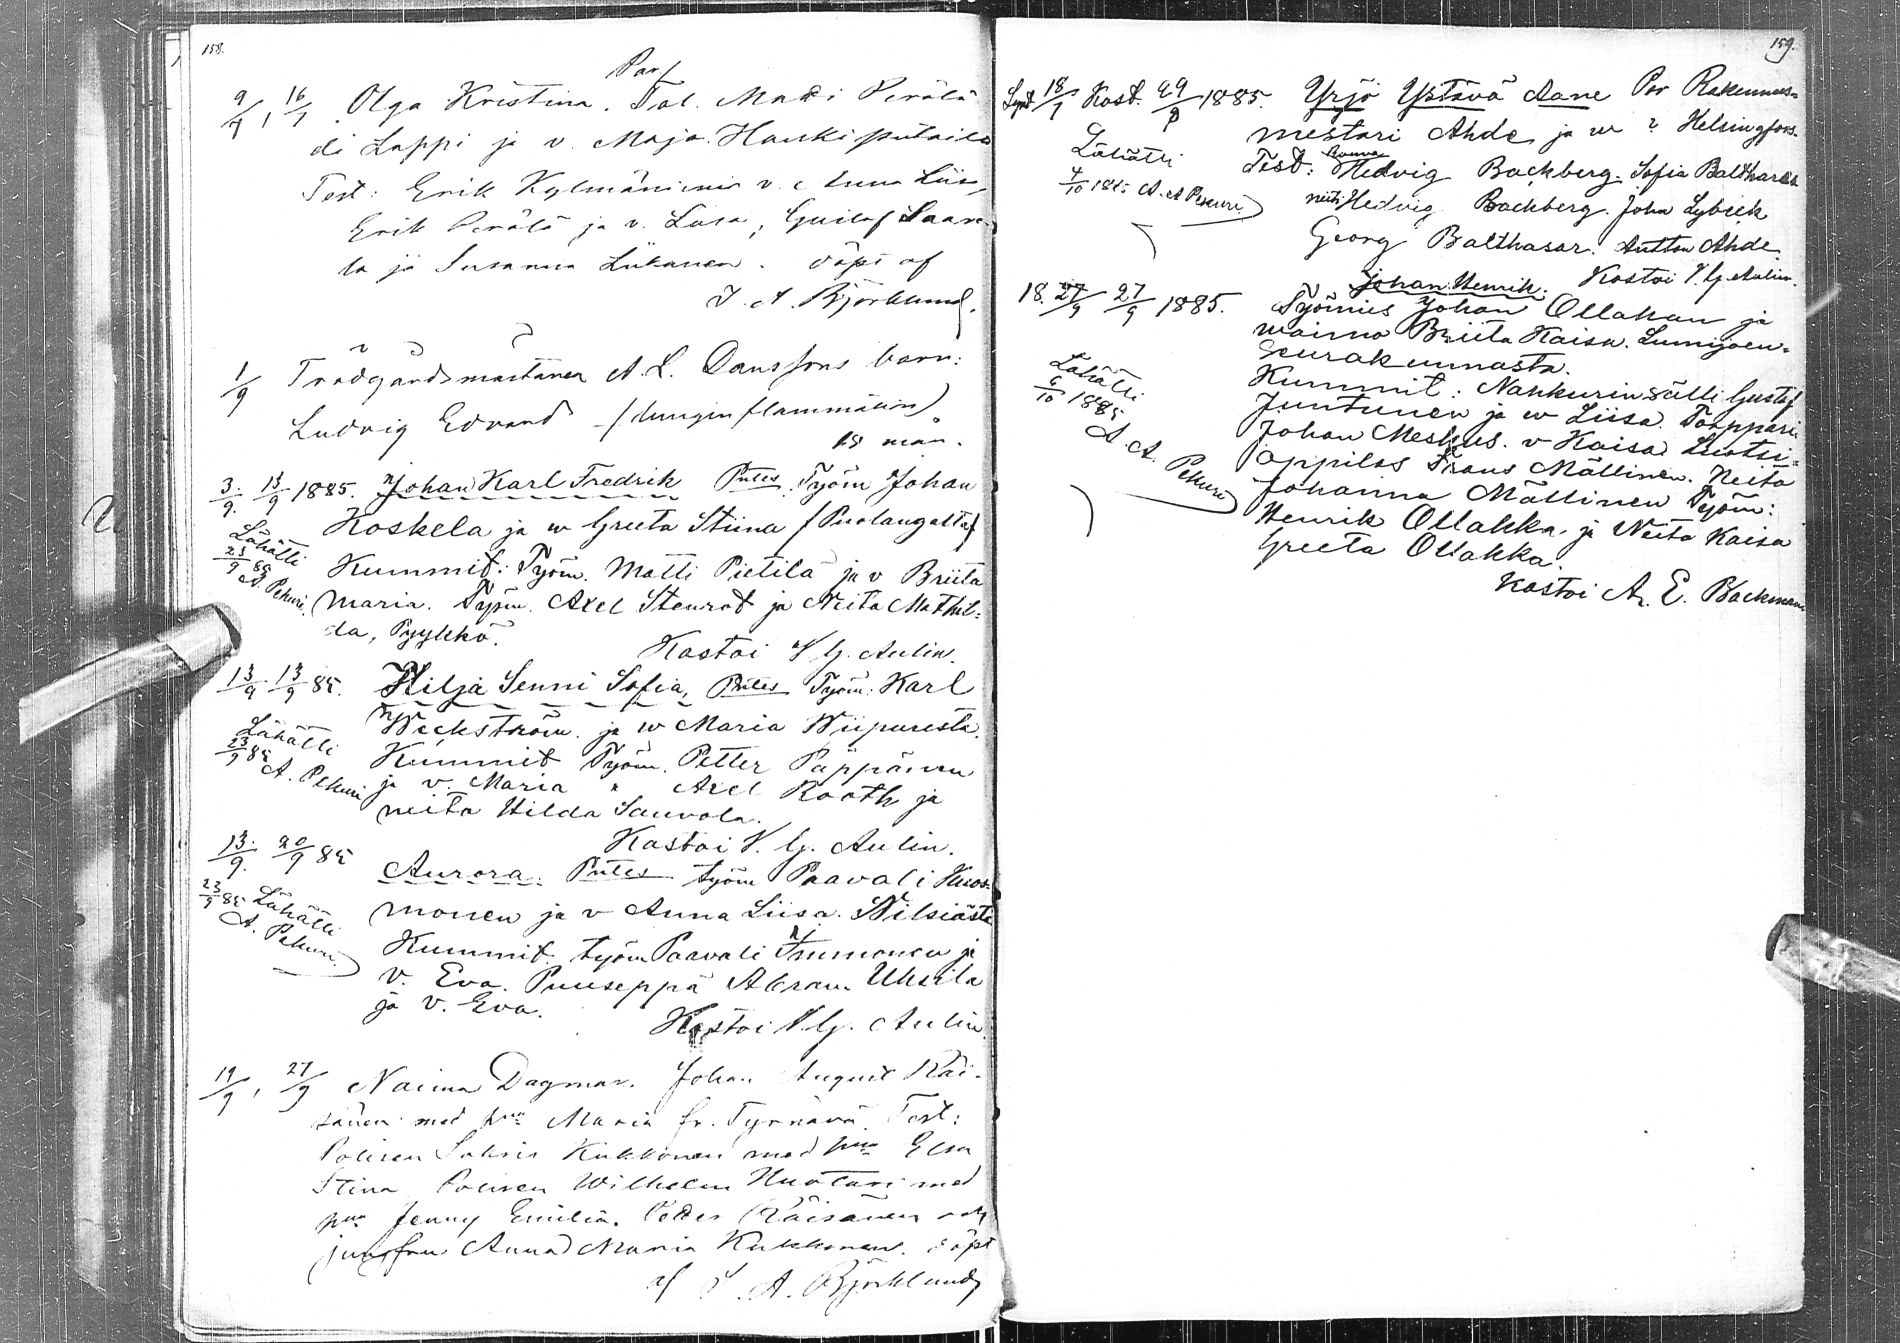 158.
Par/
9/7, 16/7 Olga Kristina. Tal. Matti Perälä
di Lappi ja v. Maja Haukiputaila
Test: Erik Kylmäniemi v. Anna Liis,
Erik Perälä ja v. Lusa, Gustaf Saare-
la ja Susanna Liikanen. döpt af
J. A. Björklund.
1/9 Trädgårdsmästaren A. L. Danssons barn:
Ludvig Edvard (lunginflammation)
mån.
3/9. 13/9 1885. Johan Karl Fredrik Ptes. Työm Johan
Koskela ja w Greeta Stiina (Puolangalta)
Lähätti
23/9 85
A. Pekuri.
Kummit: Työm. Matti Pietilä ja v Briita
Maria. Työm. Axel Stenrot ja Neita Mathil-
da, Pyykkö.
Kastoi V. G. Aulin.
13/9 13/9 85. Hilja Senni Sofia, Ptes Työm: Karl
Weckström. ja w Maria Wiipurista.
Lähätti
23/9 85
A. Pekuri
Kummit Työm. Petter Päppönen
ja v. Maria " Axel Rooth ja
neita Hilda Sauvola.
Kastoi V. G. Aulin.
13/9. 20/9 85 Aurora. Ptes työm Paavali Kuos-
monen ja v Anna Liisa. Nilsiästä
23/9 85 Lähätti
A. Pekuri.
Kummit. työm Paavali Immonen ja
v. Eva. Puuseppä Abram Uksila
ja v. Eva.
Kastoi V. G. Aulin
19/9, 27/9 Naima Dagmar. Johan August Räi-
sänen med hu Maria fr. Tyrnävä. Test:
Polisen Sakris Kukkonen med hu Elsa
Stina Polisen Wilhelm Huotari med
hu Jenny Emilia. Petter Räisänen och
jungfru Anna Maria Kukkonen. döpt
af J. A. Björklund
159.
Synt 18/7 Kast. 29/9 1885. Yrjö Ystävä Aane Par Rakennus-
mestari Ahde ja w ? Helsingfors.
Lähätti
4/10 1885 A. A Pekuri.
Test: Rouva Hedvig Backberg. Sofia Balthasar
neiti Hedvig Backberg. John Lybeck
Georg Balthasar. Antton Ahde
Kastoi V. G. Aulin.
Johan Henrik.
18. 27/9 27/9 1885. Työmies Johan Ollakan ja
waimo Briita Kaisa. Lumijoen-
seurakunnasta.
Lähätti
6/10 1885
A. A. Pekuri
Kummit: Nahkurinsälli Gustaf
Juntunen ja w Liisa Torppari
Johan Meskus. v Kaisa Luotsi-
oppilas Frans Mällinen. Neita
Johanna Mällinen Työm:
Henrik Ollakka. ja Neita Kaisa
Greeta Ollakka.
Kastoi A. E. Backman